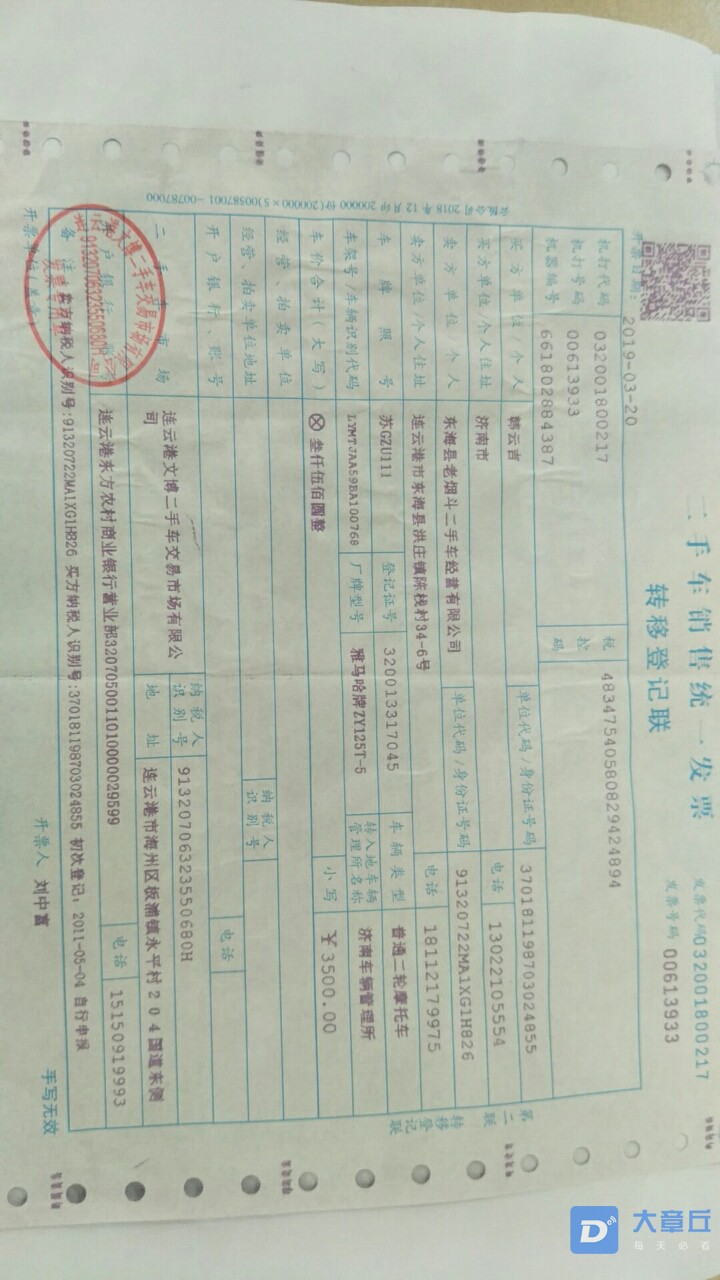 二手车销售统一发票
转移登记联
发票代码 032001800217
发票号码 00613933
开票日期: 2019-03-20
机打代码 032001800217
机打号码 00613933
机器编号 661802884387
税控码 48347540580829424894
买方单位/个人 韩云吉 单位代码/身份证号码 370181198703024855
买方单位/个人住址 济南市 电话 13022105554
卖方单位/个人 东海县老烟斗二手车经营有限公司 单位代码/身份证号码 91320722MA1XG1H826
卖方单位/个人住址 连云港市东海县洪庄镇陈栈村34-6号 电话 18112179975
车牌照号 苏GZU111 登记证号 320013317045 车辆类型 普通二轮摩托车
车架号/车辆识别代码 LYMTJAA59BA100768 厂牌型号 雅马哈牌ZY125T-5 转入地车辆管理所名称 济南车辆管理所
车价合计(大写) ⊗ 叁仟伍佰圆整 小写 ￥3500.00
经营、拍卖单位
经营、拍卖单位地址 纳税人识别号
开户银行、账号 电话
二手车市场 连云港文博二手车交易市场有限公司 纳税人识别号 91320706323550680H
地址 连云港市海州区板浦镇永平村204国道东侧
开户银行 连云港东方农村商业银行营业部3207050011010000029599 电话 15150919993
备注 卖方纳税人识别号:91320722MA1XG1H826 买方纳税人识别号:370181198703024855 初次登记: 2011-05-04 自行申报
开票单位(盖章) 开票人 刘中富 手写无效
第二联 转移登记联
有限公司 2018 年 12 月印 200000 份(200000×5)00587001-00787000
91320706323550680H
大章丘
每天必看